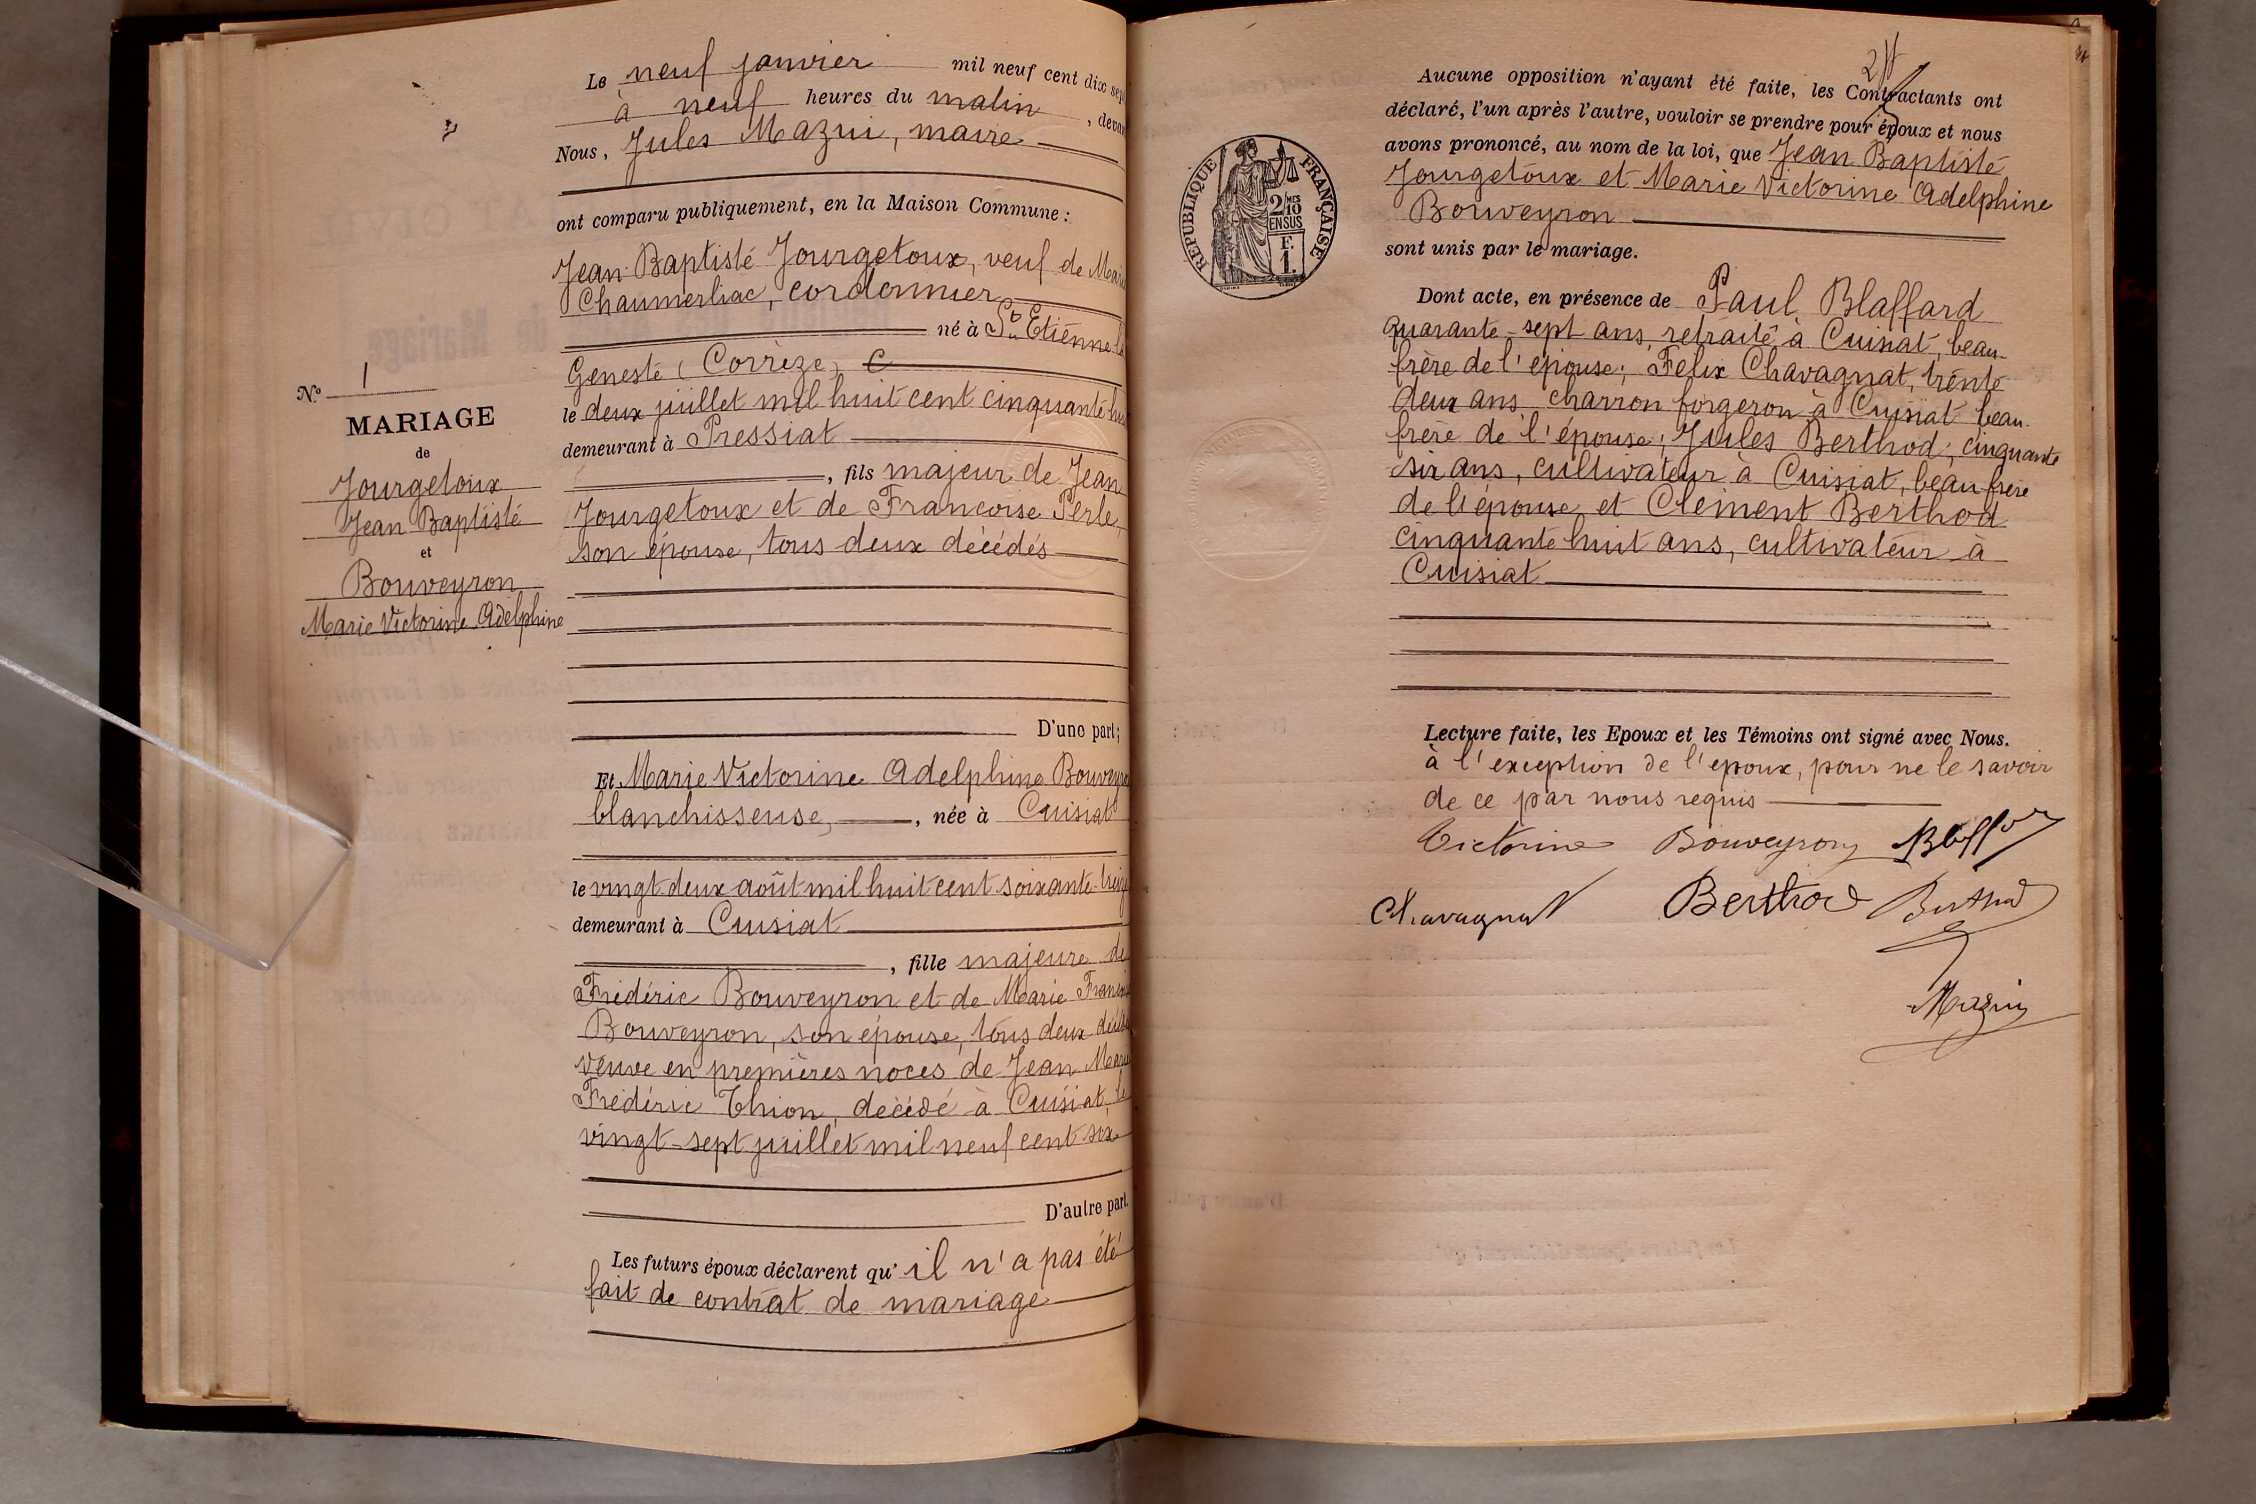 Le neuf janvier mil neuf cent dix sept
à neuf heures du matin, devant
Nous, Jules Mazui, maire
ont comparu publiquement, en la Maison Commune :
Jean-Baptiste Jourgetoux, veuf de
Chaumerliac, cordonnier
né à St Etienne la
Geneste (Corrèze)
le deux juillet mil huit cent cinquante
demeurant à Pressiat
, fils majeur de Jean
Jourgetoux et de Francoise Perle,
son épouse, tous deux décédés
D'une part ;
Et Marie Victorine Adelphine Bouveyron
blanchisseuse, née à Cuisiat
le vingt deux août mil huit cent soixante-treize
demeurant à Cuisiat
, fille majeure de
Frédéric Bouveyron et de Marie
Bouveyron, son épouse, tous deux
veuve en premières noces de Jean Marie
Frédéric Thion, décédé à Cuisiat, le
vingt-sept juillet mil neuf cent six
D'autre part.
Les futurs époux déclarent qu'il n'a pas été
fait de contrat de mariage
No 1
MARIAGE
de
Jourgetoux
Jean Baptiste
et
Bouveyron
Marie Victorine Adelphine
Aucune opposition n'ayant été faite, les Contractants ont
déclaré, l'un après l'autre, vouloir se prendre pour époux et nous
avons prononcé, au nom de la loi, que Jean Baptiste
Jourgetoux et Marie Victorine Adelphine
Bouveyron
sont unis par le mariage.
Dont acte, en présence de Paul Blaffard
quarante-sept ans, retraité à Cuisiat, beau-
frère de l'épouse; Felix Chavagnat, trente
deux ans, charron forgeron à Cuisiat beau-
frère de l'épouse; Jules Berthod, cinquante
six ans, cultivateur à Cuisiat, beau frère
de l'épouse et Clément Berthod
cinquante huit ans, cultivateur à
Cuisiat
Lecture faite, les Epoux et les Témoins ont signé avec Nous.
à l'exception de l'epoux, pour ne le savoir
de ce par nous requis
Victorine Bouveyron
Chavagnat Berthod Berthod
Mazui
RÉPUBLIQUE FRANÇAISE
2/10
EN SUS
F.
1.